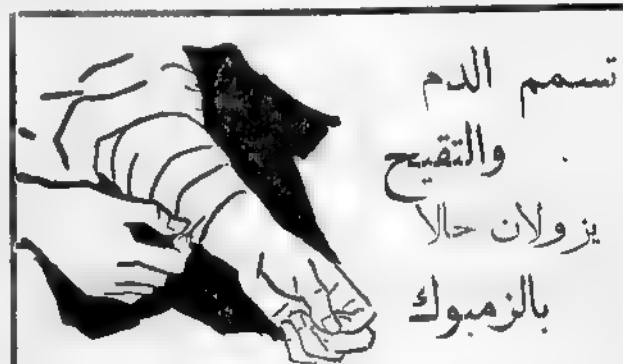 تسمم الدم
والتقيح
يزولان حالا
بالزمبوك